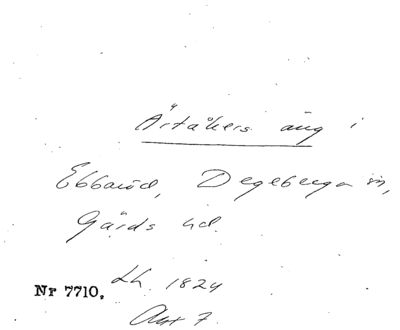 Ärtåkers äng i
Ebbaröd, Degeberga sn,
Gärds hd.
Nr 7710. Lh. 1824
Akt 7.